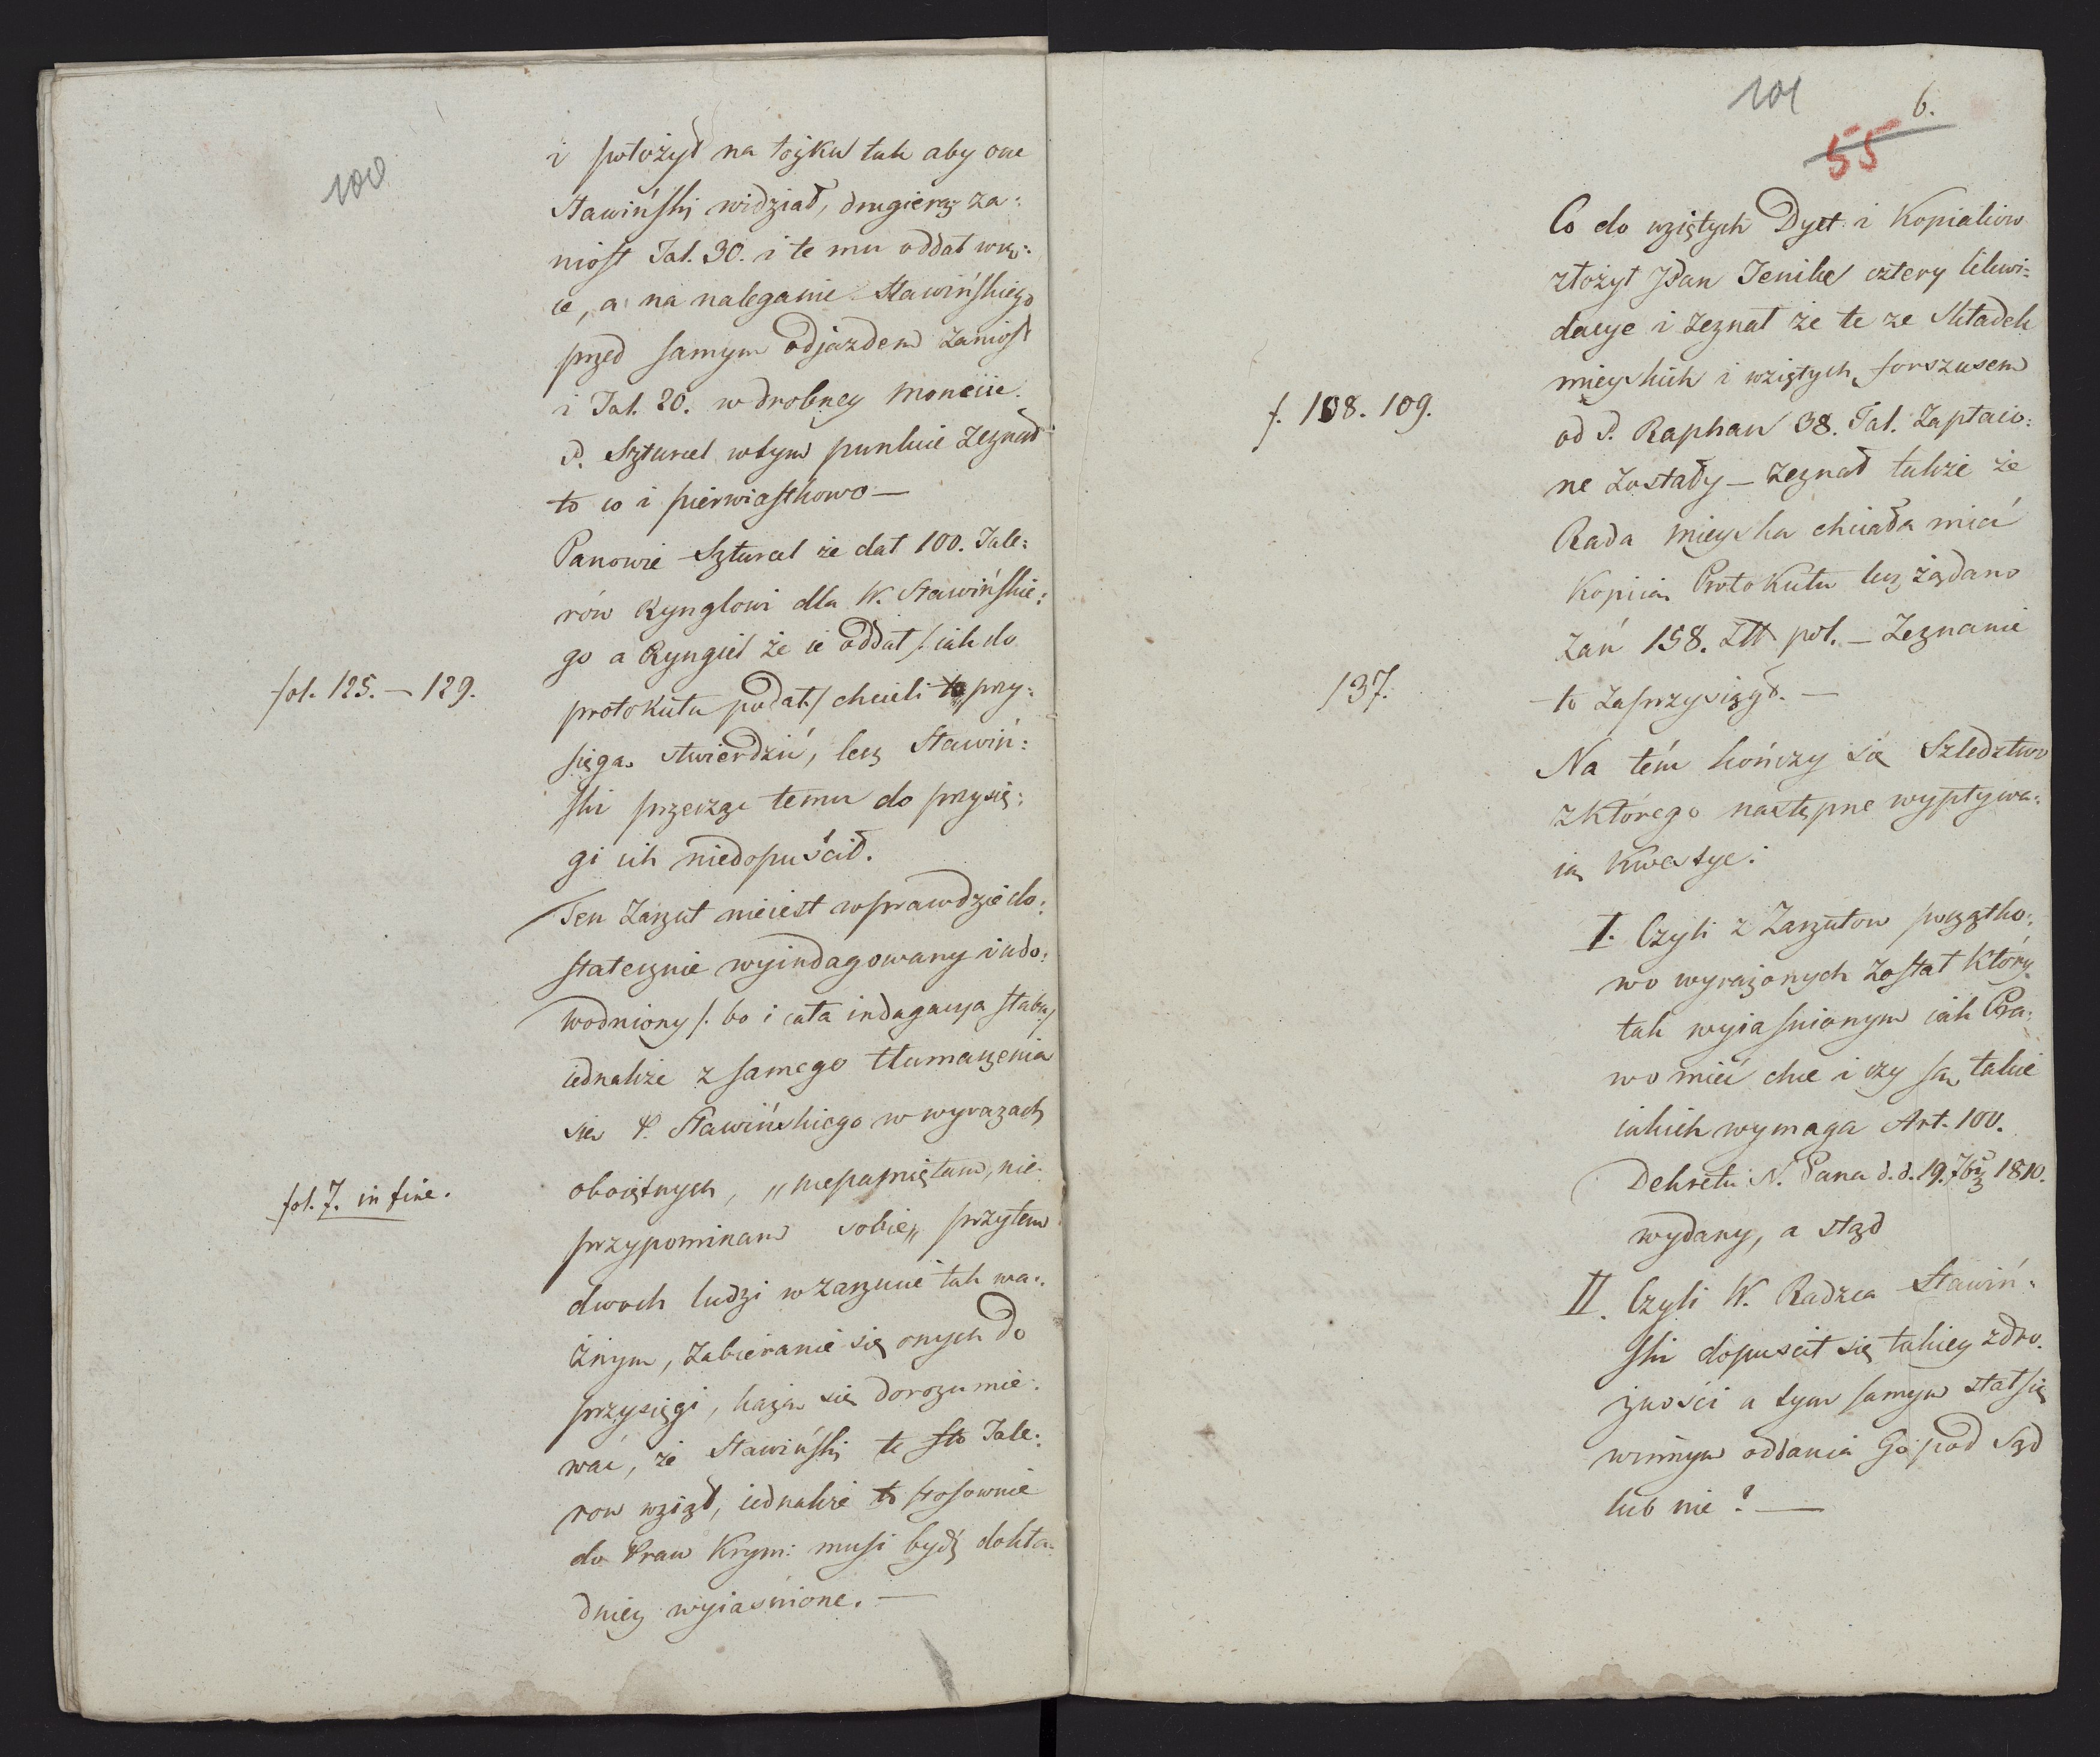 100
i położył na łóżku tak aby one
Sławiński widział, drugieraz za:
niosł Tal. 30. i te mu oddał wrę:
ce, a na naleganie Sławińskiego
przed samym odjazdem zaniosł
i Tal. 20. w drobney moneiie.
P. Szturcel wtym punkcie zeznał
to co i pierwiastkowo —
Panowie Szturcel że dał 100. Tale:
rów Rynglowi dla W. Sławińskie:
go a Ryngiel że ie oddał /: iak do
fol. 125. — 129.
protokułu podał :/ chcieli to przy:
sięgą stwierdzić, lecz Sławiń:
ski przecząc temu do przysię:
gi ich niedopuścił.
Ten Zarzut nieiest wprawdzie do:
statecznie wyindagowany i udo:
wodniony /: bo i cała indagacya słaba :/
iednakże z samego tłumaczenia
się P. Sławińskiego w wyrazach
fol. 7. in fine.
oboiętnych, „niepamiętam, nie
przypominam sobie„ przytem
dwoch ludzi w zarzucie tak wa:
żnym, zabieranie się onych do
przysięgi, każą się dorozumie:
wać, że Sławiński te sto Tale:
row wziął, iednakże to stosownie
do Praw Krym: musi bydź dokła:
dniey wyiaśnione. —
101
6.
55
Co do wziętych Dyet i Kopialiow
złożył Pan Jenike cztery likwi:
dacye i zeznał że te ze Składek
mieyskich i wziętych forszusem
f. 108. 109.
od P. Raphan 38. Tal. zapłaco:
ne zostały — zeznał także że
Rada mieyska chciała mieć
Kopią Protokułu lecz żądano
zań 158. Złł pol. — Zeznanie
137.
to zaprzysiągł. —
Na tém kończy się Szledztwo
z którego następne wypływa:
ią Kwestye:
I. Czyli z Zarzutow początko:
wo wyrażonych został który
tak wyiaśnionym iak Pra:
wo mieć chce i czy są takie
iakich wymaga Art. 100.
Dekretu N. Pana d. d. 19. 7brz 1810.
wydany, a stąd
II. Czyli W. Radzca Sławiń:
ski dopuscił się takiey zdro:
żności a tym samym stał się
winnym oddania Go pod Sąd
lub nie? —